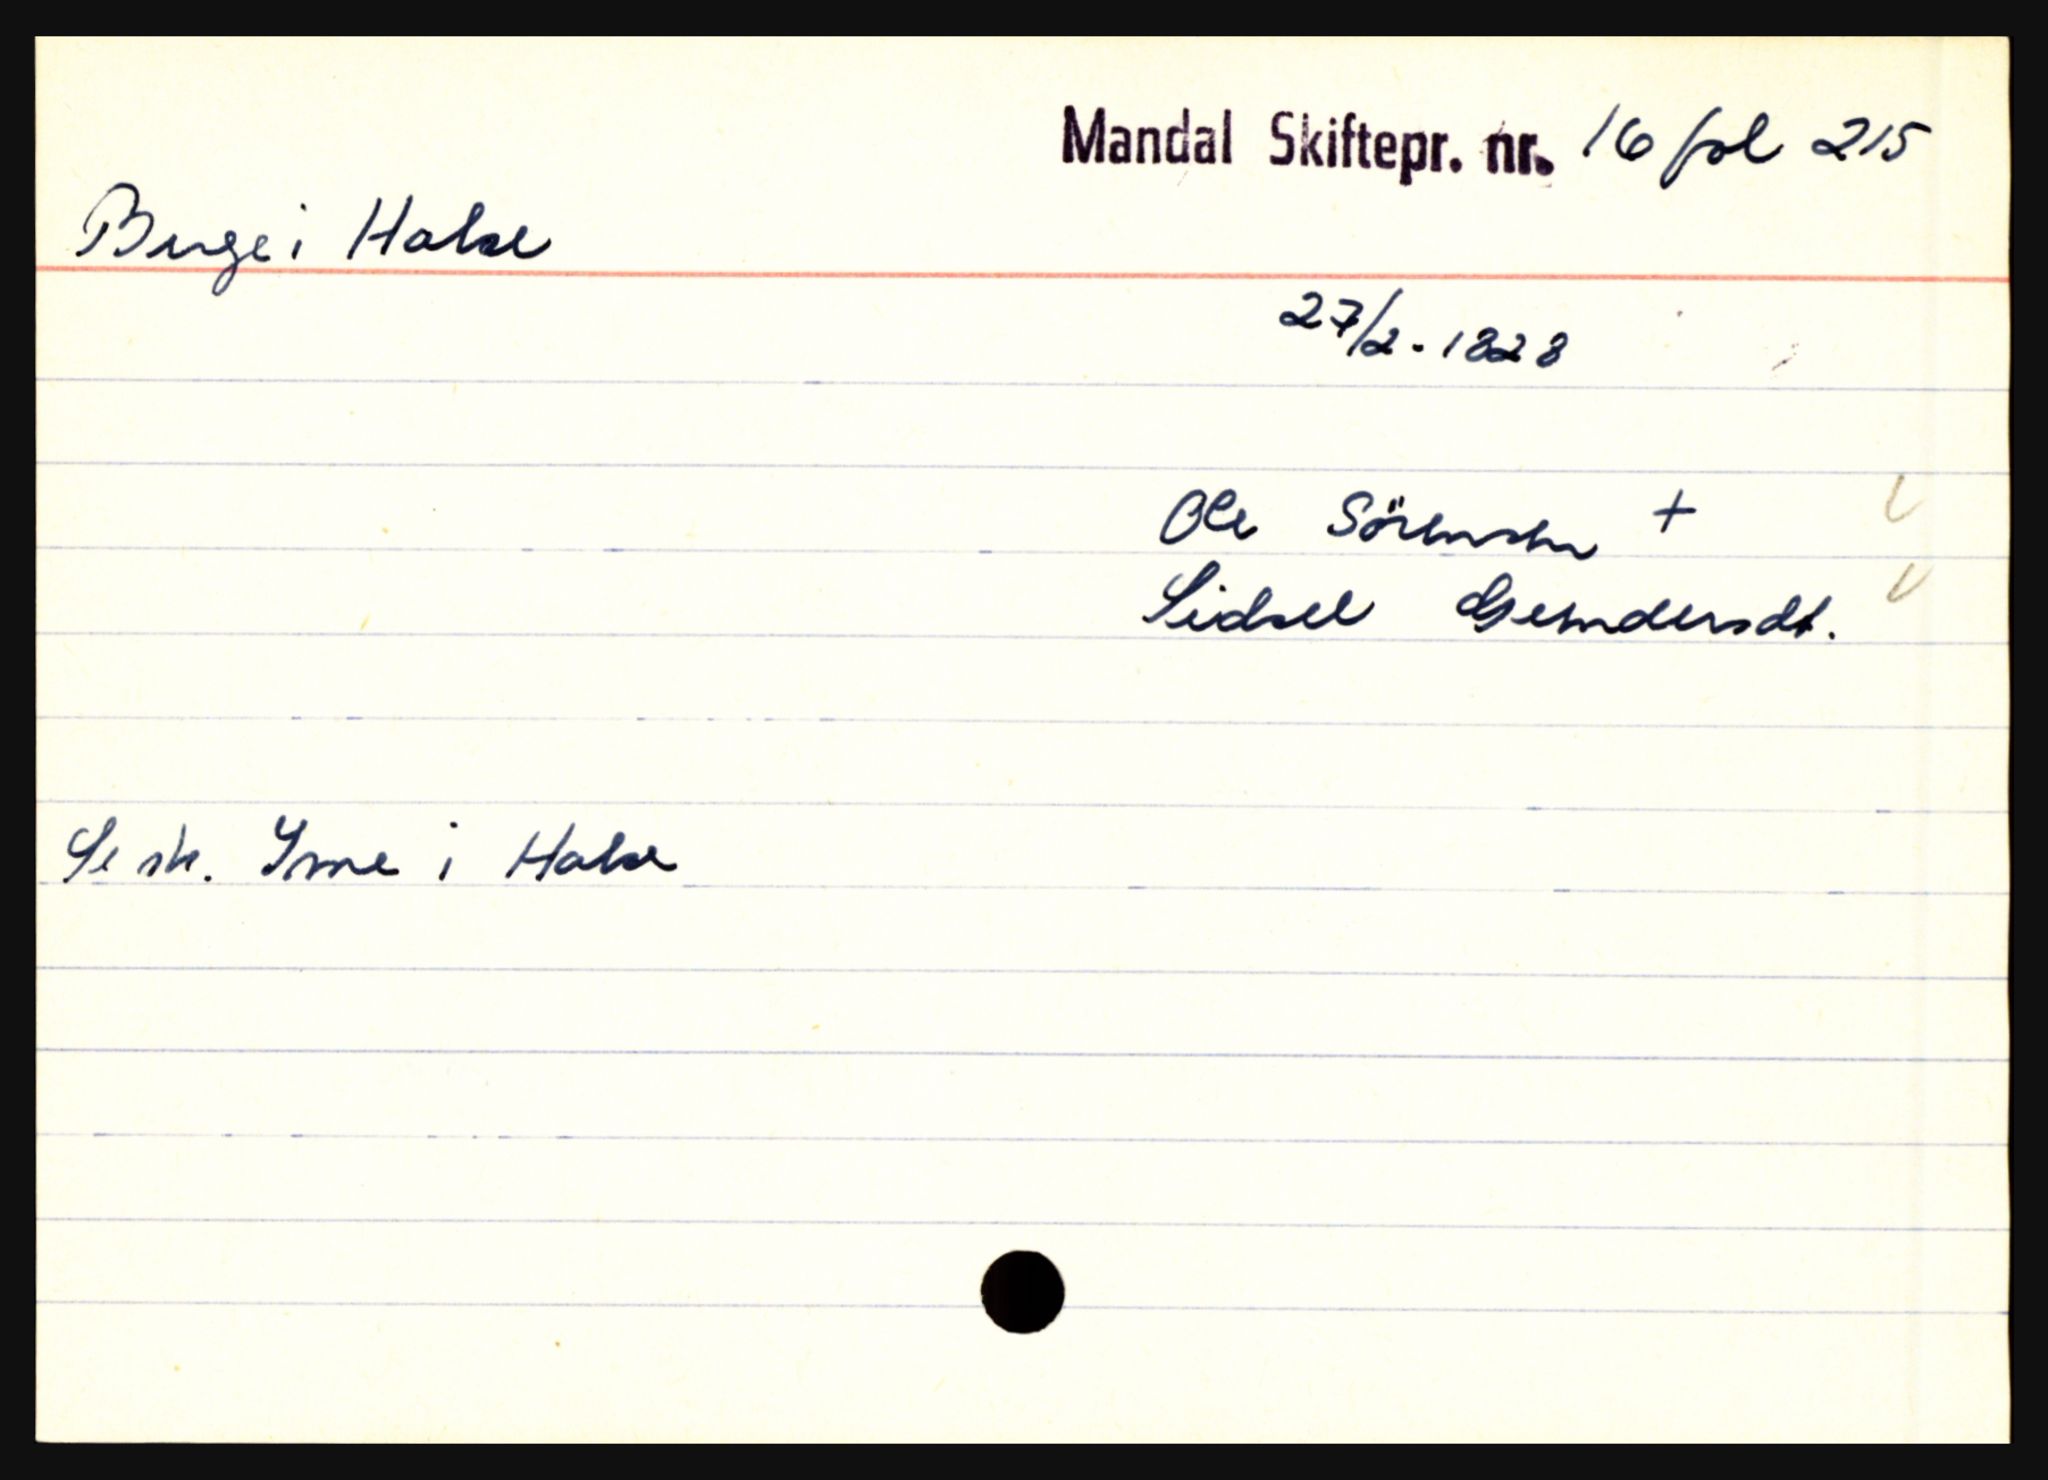 Mandal Skiftepr. nr. 16 fol 215
Berge i Halse
27/2. 1828
Ole Sörensen +
Sidsel Gemdersdt.
Se sk. Ime i Halse